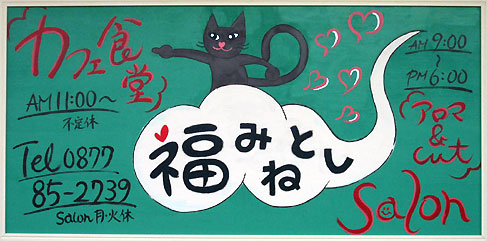 カフェ食堂
AM11:00〜
不定休
Tel 0877
85-2739
Salon 月・火休
福みねとし
AM 9:00
〜
PM 6:00
アロマ
&
cut
Salon